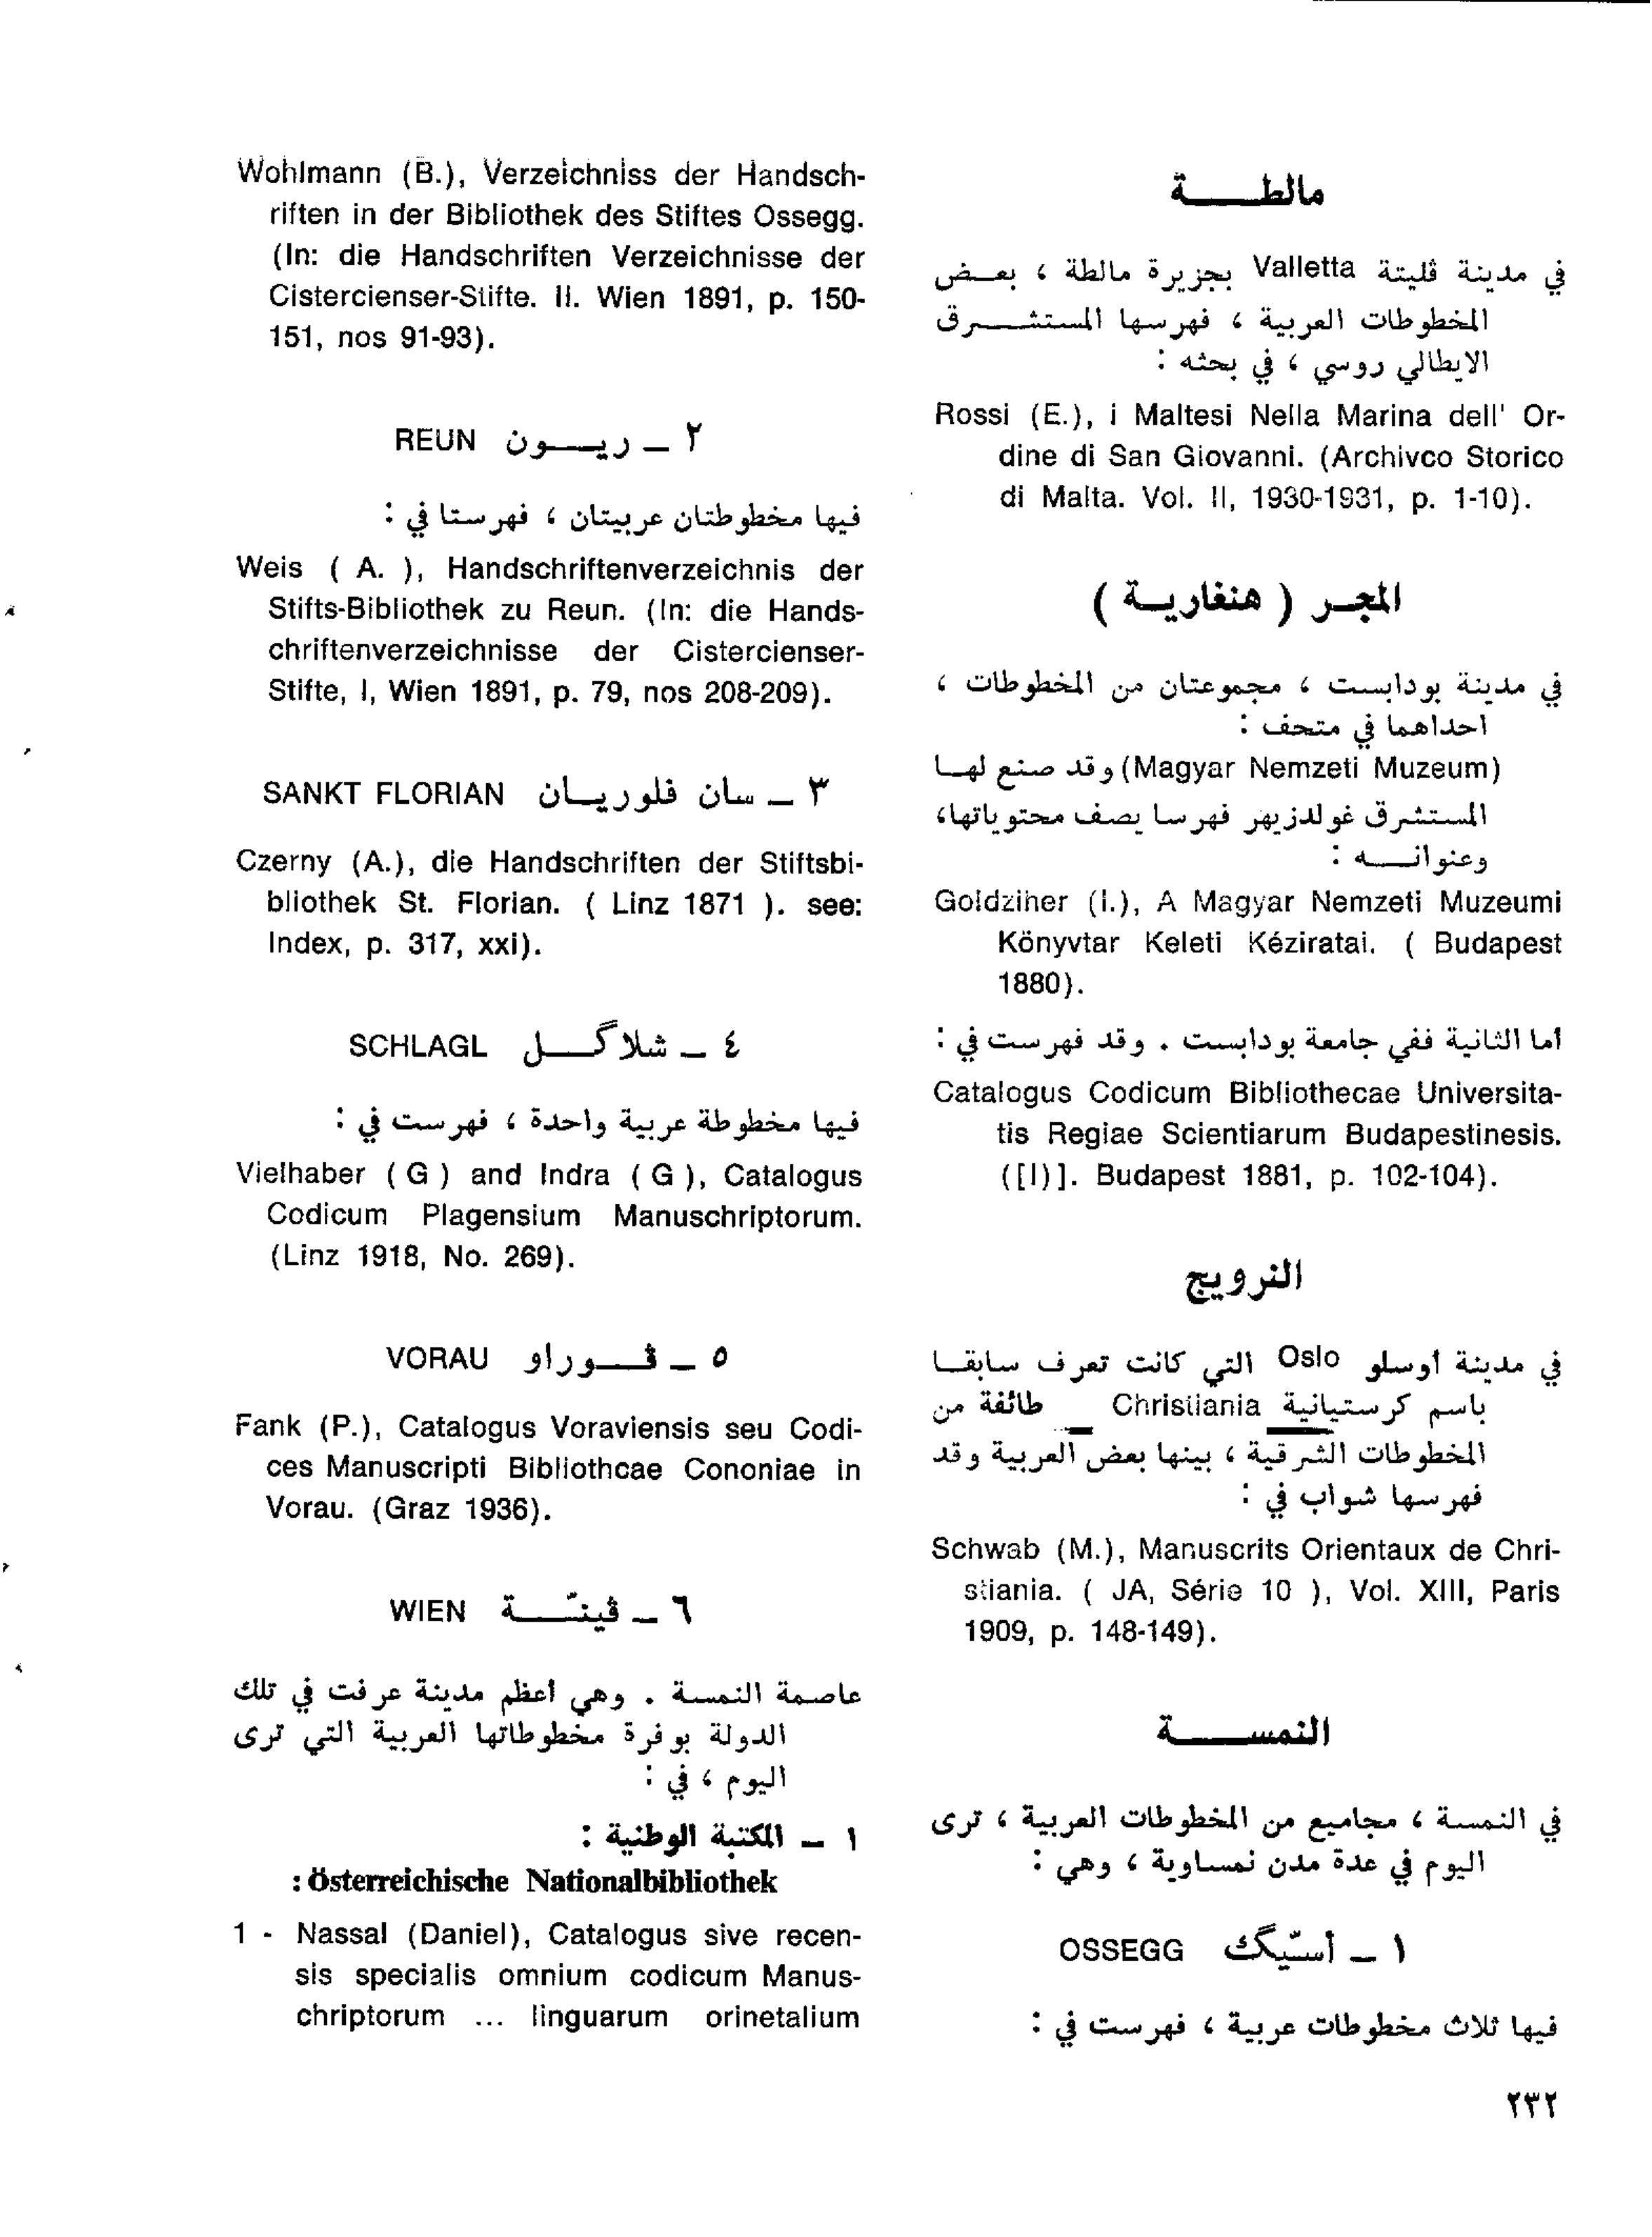 مالطـــة
في مدينة ڤليتة Valletta بجزيرة مالطة ، بعــض
المخطوطات العربية ، فهرسها المستشـــرق
الايطالي روسي ، في بحثه :
Rossi (E.), i Maltesi Nella Marina dell' Or-
dine di San Giovanni. (Archivco Storico
di Malta. Vol. II, 1930-1931, p. 1-10).
المجـر ( هنغاريـة )
في مدينة بودابست ، مجموعتان من المخطوطات ،
احداهما في متحف :
(Magyar Nemzeti Muzeum) وقد صنع لهـا
المستشرق غولدزيهر فهرسا يصف محتوياتها،
وعنوانـــه :
Goldziher (I.), A Magyar Nemzeti Muzeumi
Könyvtar Keleti Kéziratai. ( Budapest
1880).
أما الثانية ففي جامعة بودابست . وقد فهرست في :
Catalogus Codicum Bibliothecae Universita-
tis Regiae Scientiarum Budapestinesis.
([I)]. Budapest 1881, p. 102-104).
النرويج
في مدينة أوسلو Oslo التي كانت تعرف سابقـا
باسم كرستيانية Christiania _ طائفة من
المخطوطات الشرقية ، بينها بعض العربية وقد
فهرسها شواب في :
Schwab (M.), Manuscrits Orientaux de Chri-
stiania. ( JA, Série 10 ), Vol. XIII, Paris
1909, p. 148-149).
النمســـة
في النمسـة ، مجاميع من المخطوطات العربية ، ترى
اليوم في عدة مدن نمساوية ، وهي :
١ – أسّيگ OSSEGG
فيها ثلاث مخطوطات عربية ، فهرست في :
Wohlmann (B.), Verzeichniss der Handsch-
riften in der Bibliothek des Stiftes Ossegg.
(In: die Handschriften Verzeichnisse der
Cistercienser-Stifte. II. Wien 1891, p. 150-
151, nos 91-93).
٢ – ريـــون REUN
فيها مخطوطتان عربيتان ، فهرستا في :
Weis ( A. ), Handschriftenverzeichnis der
Stifts-Bibliothek zu Reun. (In: die Hands-
chriftenverzeichnisse der Cistercienser-
Stifte, I, Wien 1891, p. 79, nos 208-209).
٣ – سان فلوريـان SANKT FLORIAN
Czerny (A.), die Handschriften der Stiftsbi-
bliothek St. Florian. ( Linz 1871 ). see:
Index, p. 317, xxi).
٤ – شلاگـــل SCHLAGL
فيها مخطوطة عربية واحدة ، فهرست في :
Vielhaber ( G ) and Indra ( G ), Catalogus
Codicum Plagensium Manuschriptorum.
(Linz 1918, No. 269).
٥ – ڤـــوراو VORAU
Fank (P.), Catalogus Voraviensis seu Codi-
ces Manuscripti Bibliothcae Cononiae in
Vorau. (Graz 1936).
٦ – ڤينّـــة WIEN
عاصمة النمسـة . وهي أعظم مدينة عرفت في تلك
الدولة بوفرة مخطوطاتها العربية التي ترى
اليوم ، في :
١ – المكتبة الوطنية :
Österreichische Nationalbibliothek :
1 - Nassal (Daniel), Catalogus sive recen-
sis specialis omnium codicum Manus-
chriptorum ... linguarum orinetalium
٢٣٢